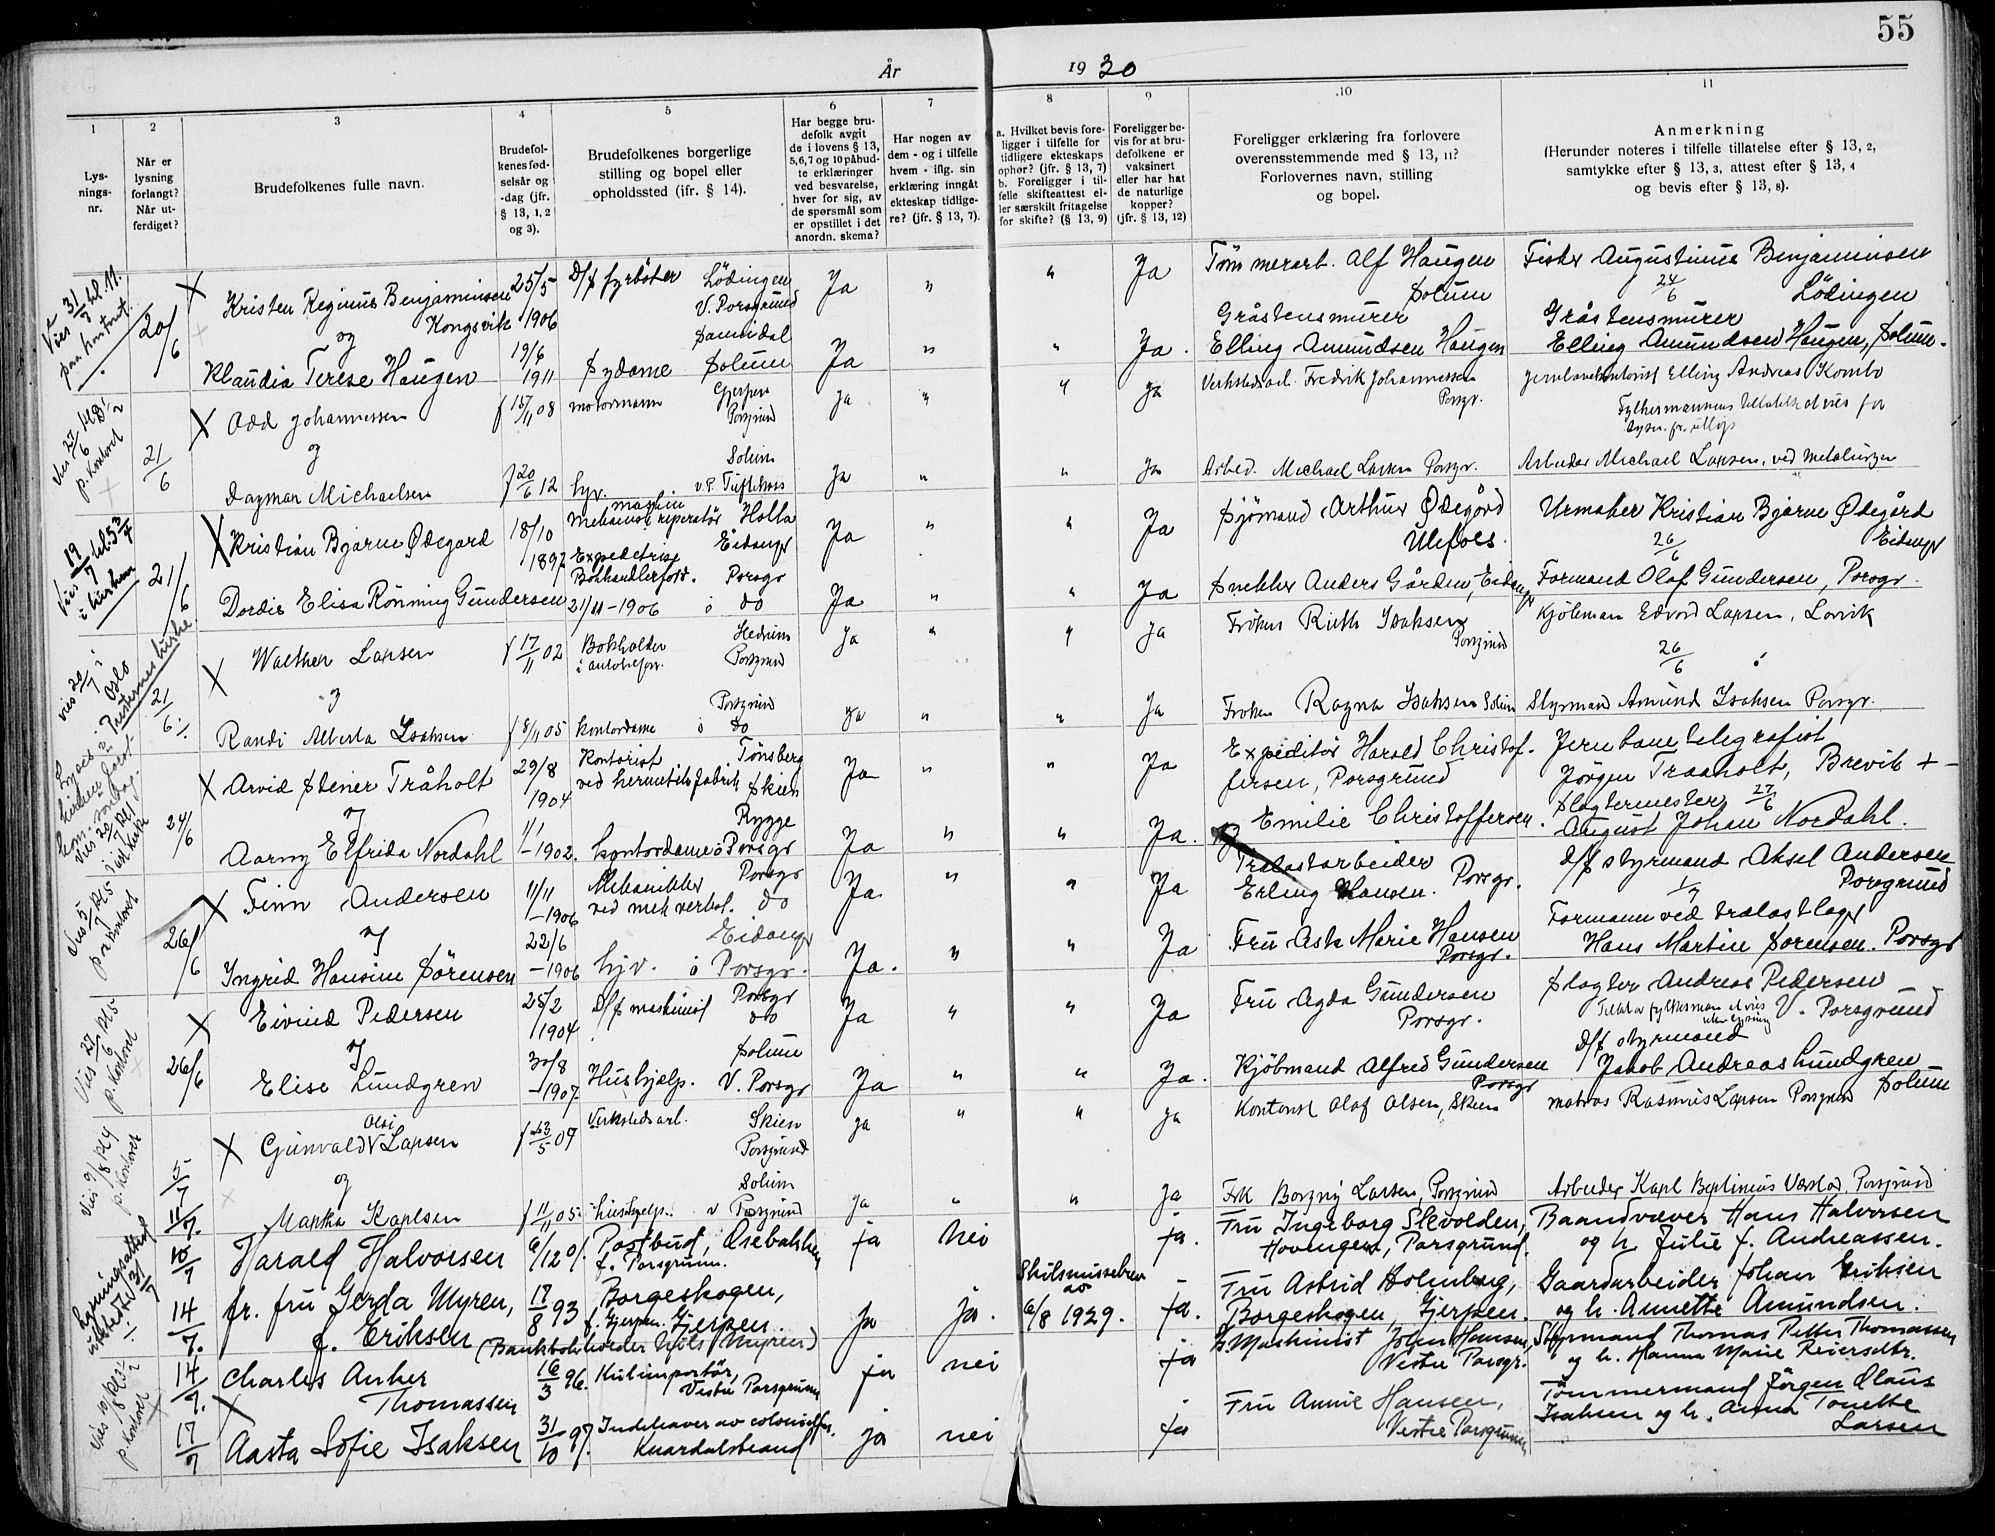 55
År 1930
1 2 3 4 5 6 7 8 9 10 11
Lys-
nings-
nr.
Når er
lysning
forlangt?
Når ut-
ferdiget?
Brudefolkenes fulle navn.
Brudefol-
kenes fød-
selsår og
-dag (jfr.
§ 13, 1, 2
og 3).
Brudefolkenes borgerlige
stilling og bopel eller
opholdssted (ifr. § 14).
Har begge bru-
defolk avgit
de i lovens § 13,
5,6,7 og 10 påbud-
te erklæringer
ved besvarelse,
hver for sig, av
de spørsmål som
er opstillet i det
anordn. skema?
Har nogen av
dem - og i tilfelle
hvem - iflg. sin
erklæring inngått
ekteskap tidlige-
re? (jfr. § 13, 7).
a. Hvilket bevis fore-
ligger i tilfelle for
tidligere ekteskaps
ophør? (jfr. § 13, 7)
b. Foreligger i til-
felle skifteattest el-
ler særskilt fritagelse
for skifte? (§ 13, 9)
Foreligger be-
vis for at bru-
defolkene er
vaksinert
eller har hat
de naturlige
kopper?
(jfr. § 13, 12)
Foreligger erklæring fra forlovere
overensstemmende med § 13, 11?
Forlovernes navn, stilling
og bopel.
Anmerkning
(Herunder noteres i tilfelle tillatelse efter § 13, 2,
samtykke efter § 13, 3, attest efter § 13, 4
og bevis efter § 13, 8).
20/6 Kristen Reginus Benjaminsen
Kongsvik
25/5 1906 D/s fyrbøter Lödingen
V. Porsgrund
Ja " " Ja Tömmerarb. Alf Haugen
Solum
Fisker Augustinus Benjaminsen
24/6 Lödingen
og
Klaudia Terese Haugen 19/6 1911 Sydame
Solum Ja " " Ja. Gråstensmurer
Elling Amundsen Haugen
Gråstensmurer
Elling Amundsen Haugen, Solum.
21/6 Odd Johannessen f 15/11 08 motormann Gjerpen
Porsgrund
Ja " " Ja Verkstedsarb. Fredrik Johannessen
Porsgr.
Elling Andreas Kombo
og
Dagmar Michaelsen f 20/6 12 hjv. Solum
v.P. Tuftekaas
Ja " " Ja Arbed. Michael Larsen Porsgr.
Arbeider Michael Larsen, ved
Vies 19/7 kl. 5 3/4
i kirken
21/6 Kristian Bjarne Ødegard 18/10 1897 maskin
reperatør Holla
Eidanger
Ja " " Ja Sjömand Arthur Ødegård
Ulefoss.
Urmaker Kristian Bjarne Ødegård
26/6 Eidanger
Dordis Elisa Rönning Gundersen 21/11-1906 Expeditrise
Bokhandlerforr. Porsgr
ö do
Ja " " Ja Snekker Anders Gården, Eidanger
Formand Olaf Gundersen, Porsgr.
21/6 Walther Larsen f 17/11 02 Bokholder
Hedrum
Porsgrund
Ja " " Ja Fröken Ruth Isaksen
Porsgrund
Kjöbman Edvard Larsen, Larvik
26/6
og
Randi Alberta Isaksen f 8/11 05 kontordame Porsgrund
ö do
Ja " " Ja Fröken Ragna Isaksen Solum
Styrmand Amund Isaksen Porsgr.
24/6 Arvid Steiner Tråholt 29/8 1904 Kontorist Tønsberg
ved hermetikfabrik Skien
Ja " " Ja Expeditör Harald Christof-
fersen, Porsgrund
Jernbanetelegrafist
Jörgen Traaholt, Brevik
27/6
og
Aarny Elfrida Nordahl 1/1-1902. kontordame Rygge
ö Porsgr
Ja " " Ja. Emilie Christoffersen.
Slagtermester
August Johan Nordahl.
26/6 Finn Andersen 11/11-1906 Mekanikker Porsgr
ved mek verkst. do
Ja " " Ja Trælastarbeider
Erling Hansen. Porsgr.
D/s styrmand Aksel Andersen
1/7 Porsgrund
og
Ingrid Hansine Sörensen 22/6-1906 hjv. Eidanger
ö Porsgr.
Ja. " " Ja Fru Ask Marie Hansen
Porsgr.
Formann ved trælastlager
Hans Martin Sørensen. Porsgr
Vies 27/6 kl 5
p. kontoret
26/6 Eivind Pedersen 25/2 1904. D/s maskinist Porsgr
do
Ja " " Ja Fru Agda Gundersen
Porsgr.
Slagter Andreas Pedersen
V. Porsgrund
og
Elise Lundgren 30/8-1907 Hushjælp. Solum
V. Porsgr
Ja " " Ja. Kjöbmand Alfred Gundersen
Porsgr
D/s styrmand
Jakob Andreas Lundgren
Solum
5/7 Gunvald Olsi Larsen f 23/5 07 Verkstedsarb. Skien
Porsgrund
Ja " " Ja Kontorist Olaf Olsen, Skien
matros Rasmus Larsen Porsgrund
og
11/7. Martha Karlsen f 11/11 05 hushjelp. Solum
v Porsgrund
Ja " " Ja Frk Borgny Larsen, Porsgrund
Arbeider Karl Bertinius Porsgrund
10/7 Harald Halvorsen 6/12 01. Postbud, Osebakken
f. Porsgrunn.
ja nei ja. Fru Ingeborg Slevolden,
Hovengen, Porsgrund.
Baandvæver Hans Halvorsen
og h. Julie f. Andreassen.
14/7. fr. fru Gerda Myren,
f. Eriksen 17/8 93 Borgeskogen,
f. Gjerpen. Gjerpen.
(Bankbokholder Nils Myren)
Ja ja. Skilsmissebrev
av
6/8 1929. ja. Fru Astrid Holmberg,
Borgeskogen, Gjerpen.
Gaardarbeider Johan Eriksen
og h. Annette Amundsen.
14/7. Charles Anker
Thomassen 16/3 96. Kulimportør,
Vestre Porsgrunn
ja nei ja Maskinist John Hansen,
Vestre Porsgr.
Styrmand Thomas Petter Thomassen
og h. Hanna Marie Reiersdtr.
17/7 Aasta Sofie Isaksen 31/10 97. Indehaver av colonialfor.
Knardalstrand
ja nei ja Fru Annie Hansen,
Vestre Porsgrunn
Tömmermand Jörgen Claus
Isaksen og h. Anna Tonette
Larsen